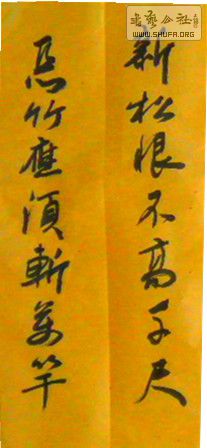 新松恨不高千尺
恶竹应须斩万竿
書藝公社
WWW.SHUFA.ORG